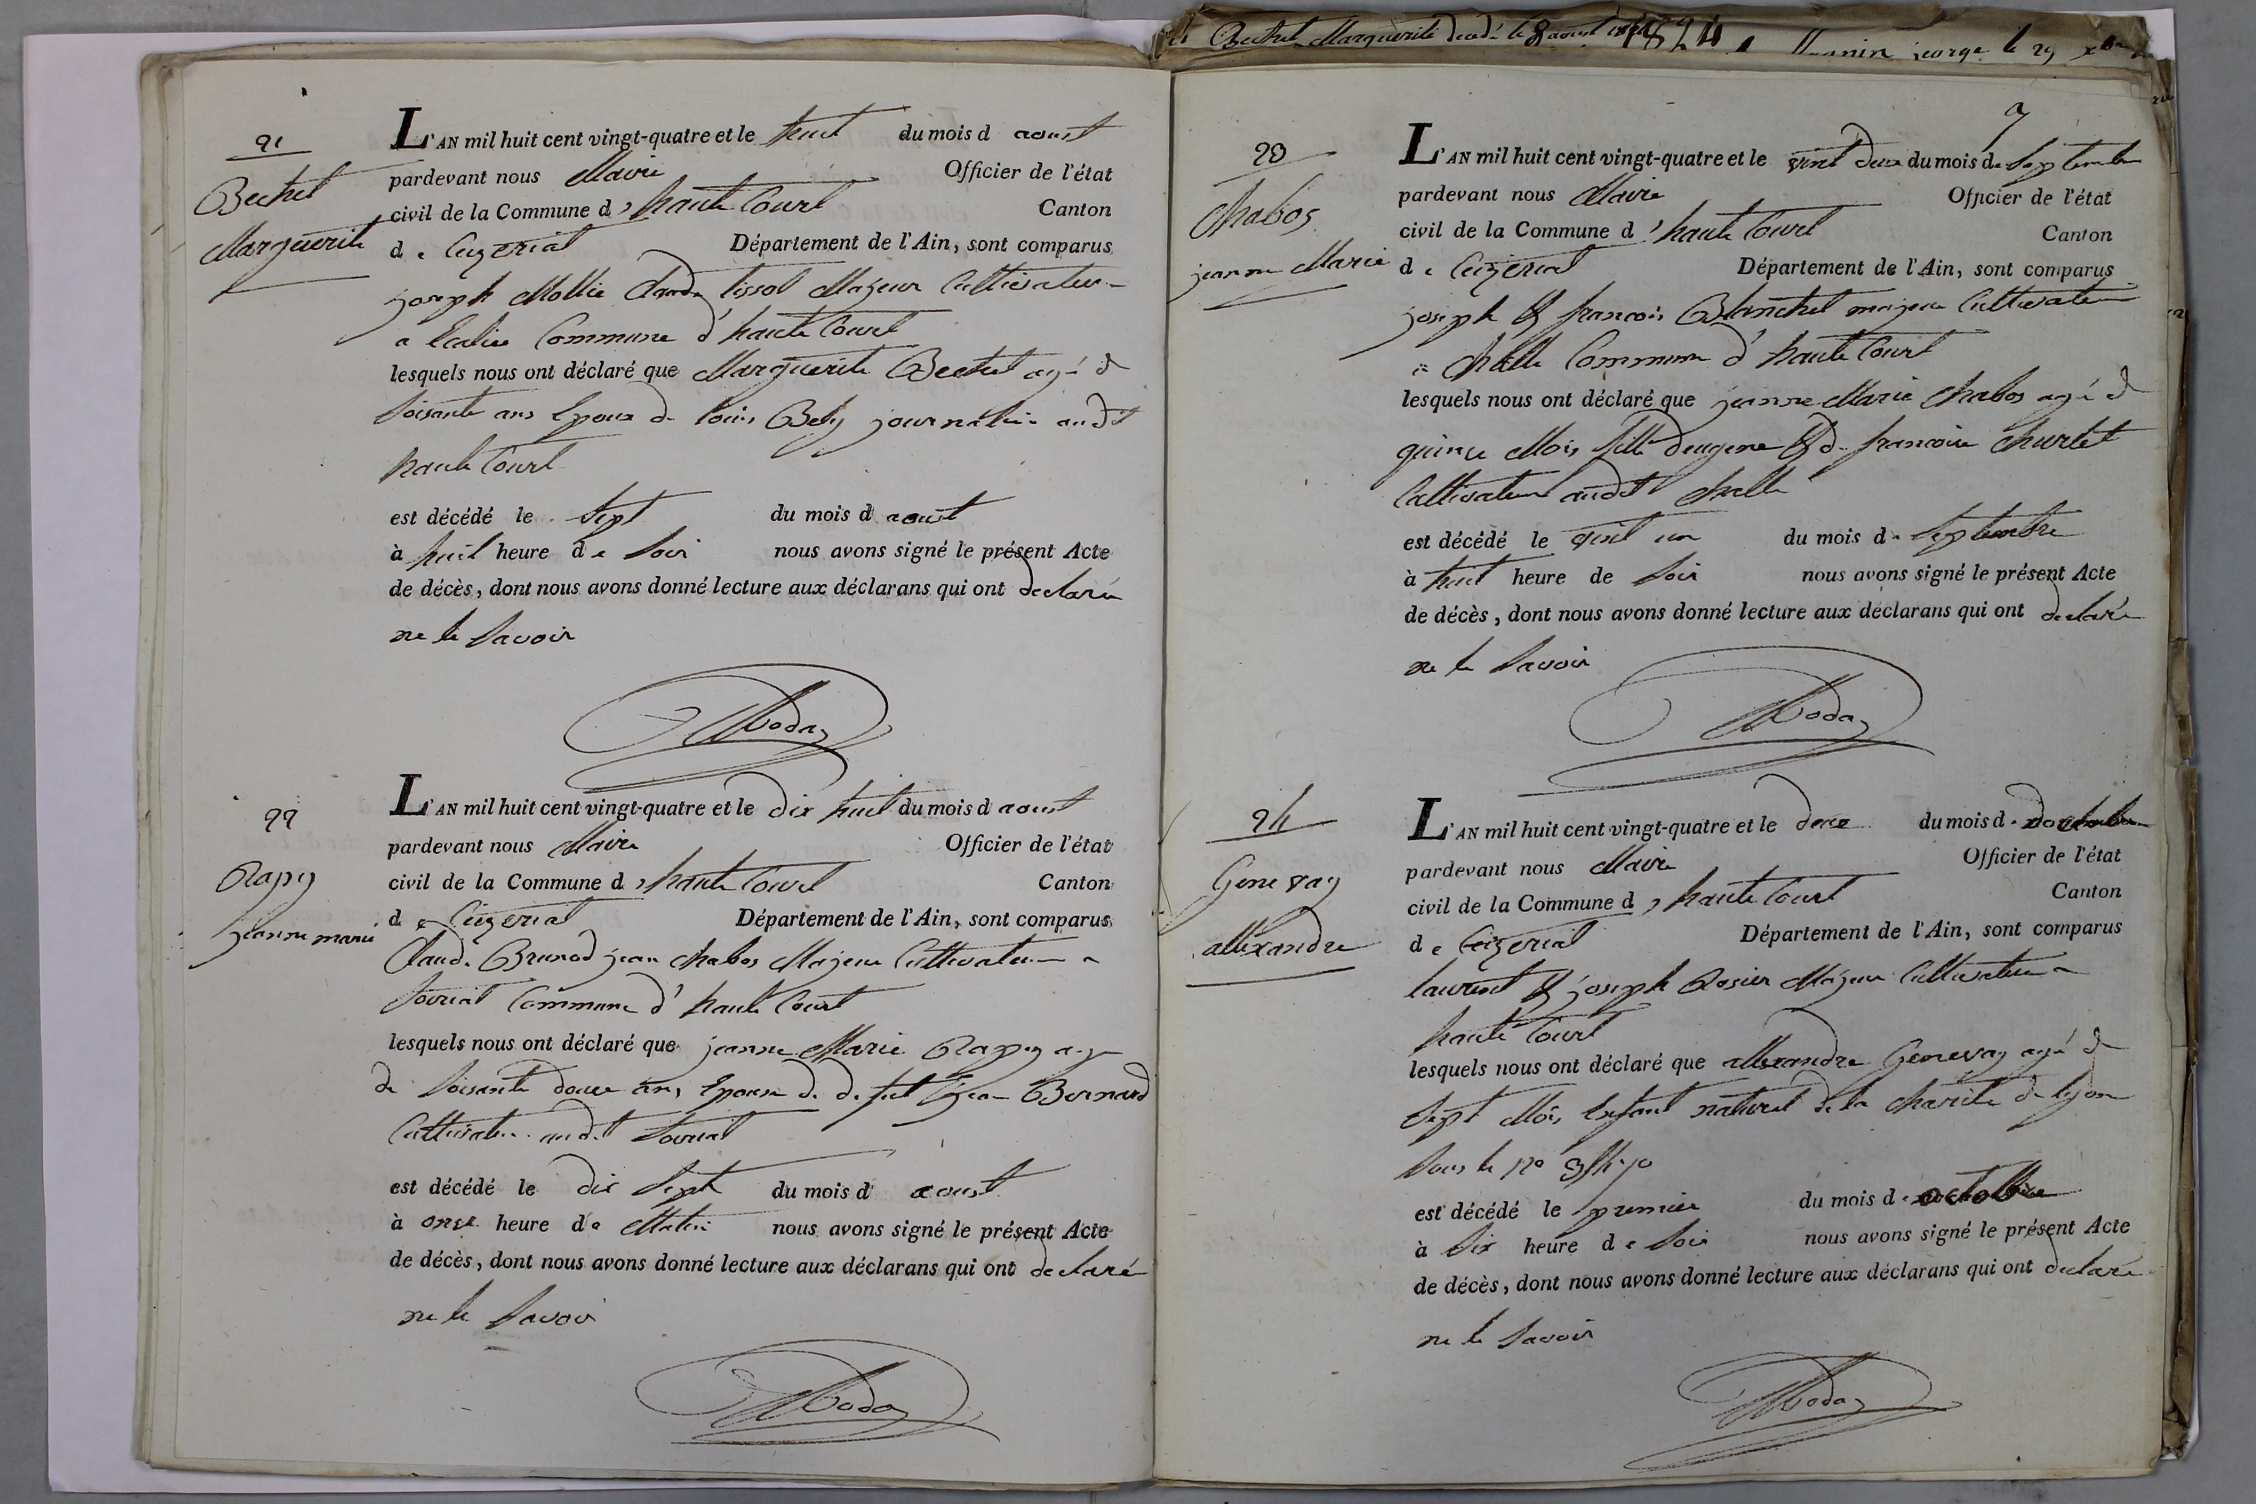 Bechet Marguerite décd. le 8 aoust 1824
george le 29
21
Bechet
Marguerite
L'AN mil huit cent vingt-quatre et le huit du mois d aoust
pardevant nous Maire Officier de l'état
civil de la Commune d'haute Court Canton
de Ceizeriat Département de l'Ain, sont comparus
joseph Mollie Claude tissot Majeur Cultivateur
a Commune d'haute Court
lesquels nous ont déclaré que Marguerite Bechet agé de
soisante ans Epouse de louis Bely journalier audit
haute Court
est décédé le sept du mois d aoust
à huit heure de soir nous avons signé le présent Acte
de décès, dont nous avons donné lecture aux déclarans qui ont declaré
ne le savoir
Roday
22
Rapy
jeanne marie
L'AN mil huit cent vingt-quatre et le dix huit du mois d aoust
pardevant nous Maire Officier de l'état
civil de la Commune d'haute Court Canton
de Ceizeriat Département de l'Ain, sont comparus
Claude Brunod jean Chabos Majeur Cultivateur a
Souriat Commune d'haute Court
lesquels nous ont déclaré que jeanne Marie Rapy agé
de soisante douce ans Epouse de defut jean Bernard
Cultivateur audit Souriat
est décédé le dix sept du mois d aoust
à onse heure de Matin nous avons signé le présent Acte
de décès, dont nous avons donné lecture aux déclarans qui ont declaré
ne le savoir
Roday
7
23
Chabos
jeanne Marie
L'AN mil huit cent vingt-quatre et le vint deux du mois de septembre
pardevant nous Maire Officier de l'état
civil de la Commune d'haute Court Canton
de Ceizeriat Département de l'Ain, sont comparus
joseph & francois Blanchet majeur Cultivateur
a Challe Commune d'haute Court
lesquels nous ont déclaré que jeanne Marie Chabos agé de
quince Mois fille deugene & de francoise Churlet
Cultivateur audit Challe
est décédé le vint un du mois de septembre
à huit heure de soir nous avons signé le présent Acte
de décès, dont nous avons donné lecture aux déclarans qui ont declaré
ne le savoir
Roday
24
Genevay
allexandre
L'AN mil huit cent vingt-quatre et le deux du mois d
pardevant nous Maire Officier de l'état
civil de la Commune d'haute Court Canton
de Ceizeriat Département de l'Ain, sont comparus
laurent & joseph Rosier Majeur Cultivateur a
haute Court
lesquels nous ont déclaré que allexandre Genevay agé de
sept Mois Enfant naturel de la charité de lyon
sous le no
est décédé le premier du mois d octobre
à six heure de soir nous avons signé le présent Acte
de décès, dont nous avons donné lecture aux déclarans qui ont declaré
ne le savoir
Roday